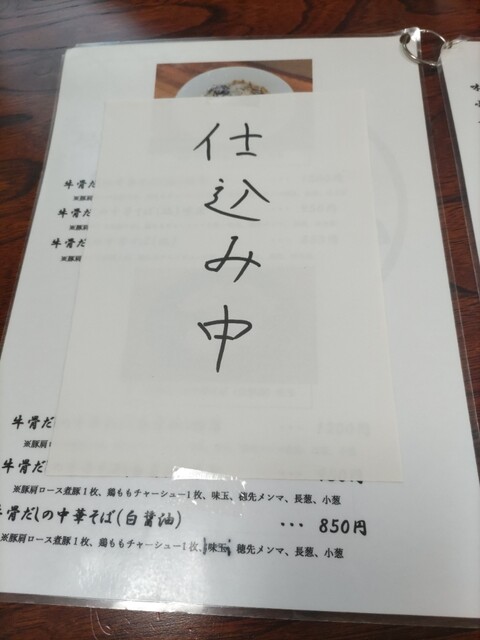 仕込み中
牛骨だ
※豚肩
牛骨だ
※豚肩
牛骨だ
※豚肩
牛骨だ
※豚肩ロ
牛骨だ
※豚肩ロース煮豚1枚、鶏ももチャーシュー1枚、味玉、穂先メンマ、長葱、小葱
牛骨だしの中華そば(白醤油) ・・・ 850円
※豚肩ロース煮豚1枚、鶏ももチャーシュー1枚、味玉、穂先メンマ、長葱、小葱